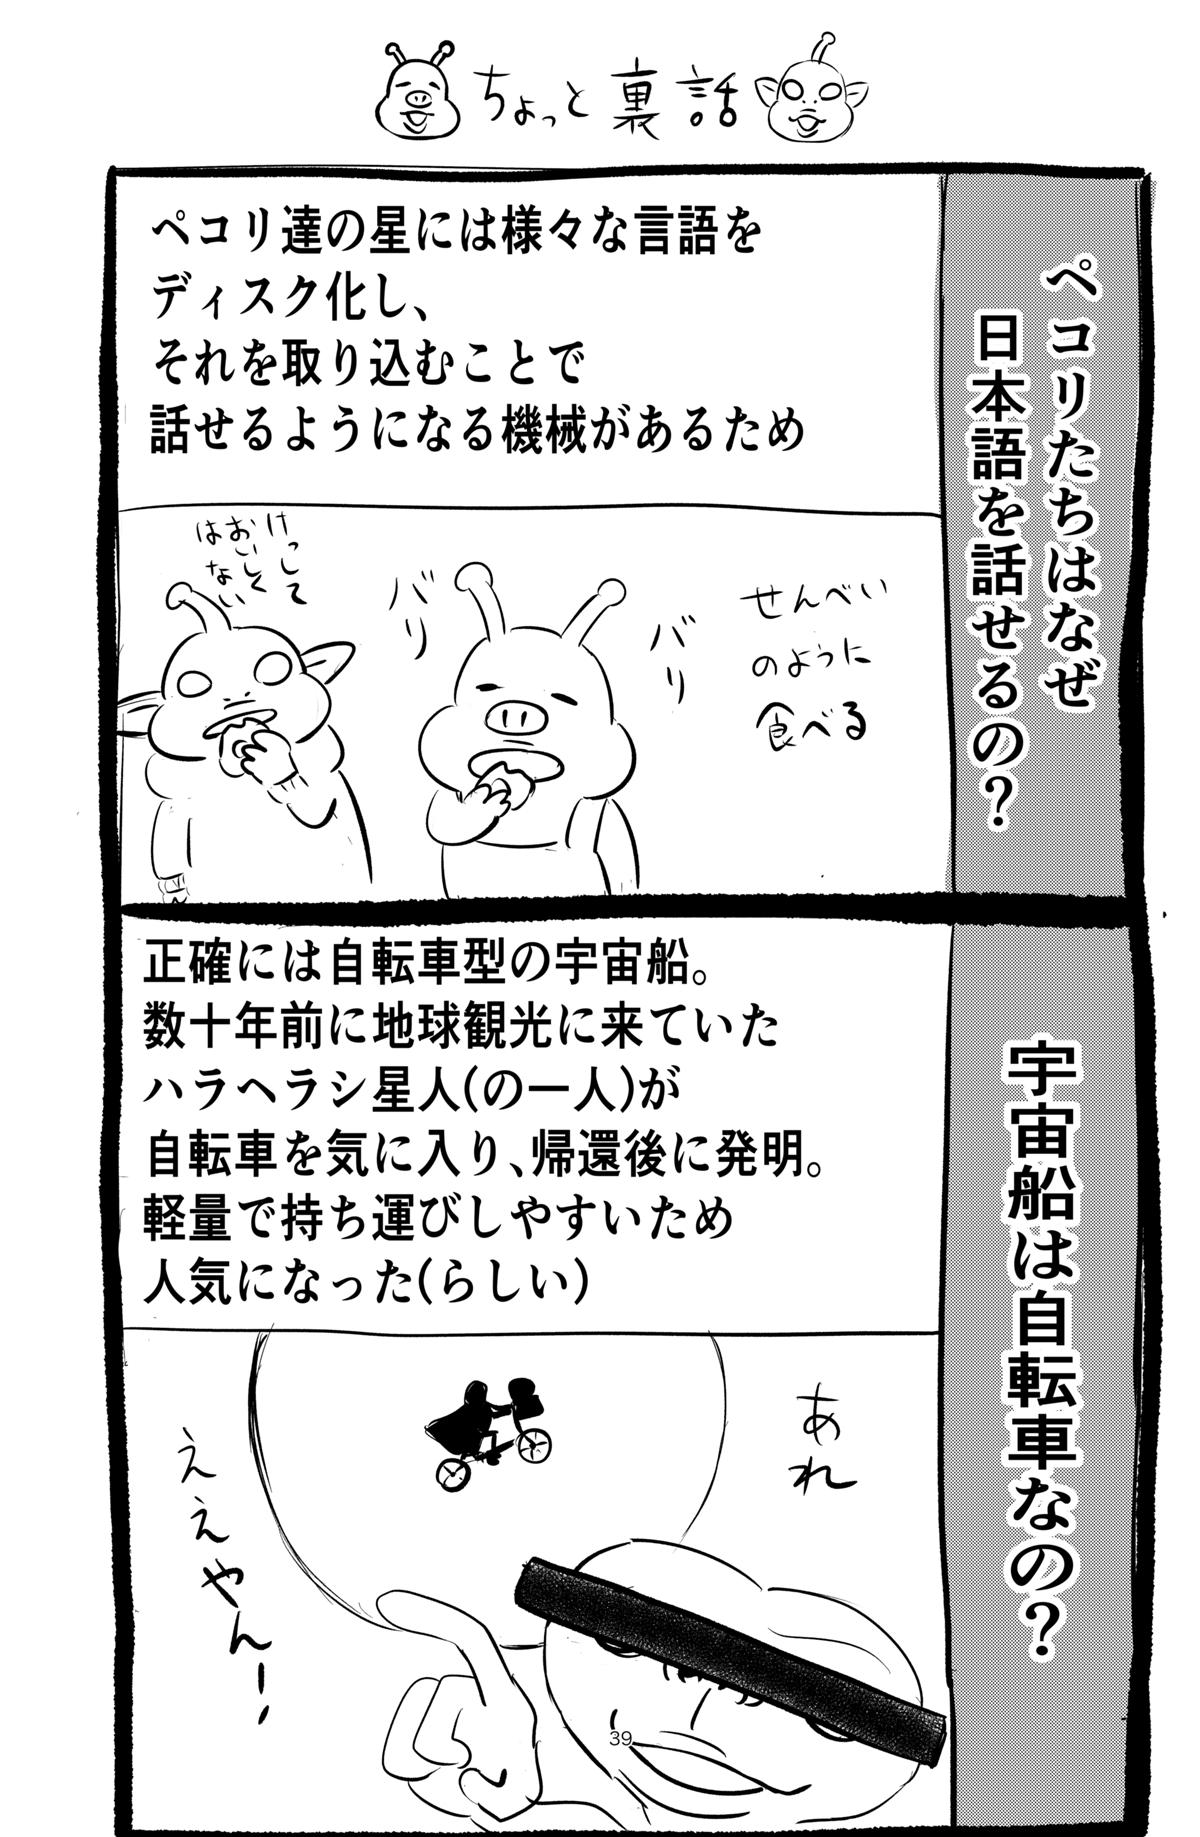 ちょっと裏話
ペコリたちはなぜ
日本語を話せるの？
ペコリ達の星には様々な言語を
ディスク化し、
それを取り込むことで
話せるようになる機械があるため
せんべい
のように
食べる
バリ
バリ
けっして
おいしく
はない
宇宙船は自転車なの？
正確には自転車型の宇宙船。
数十年前に地球観光に来ていた
ハラヘラシ星人(の一人)が
自転車を気に入り、帰還後に発明。
軽量で持ち運びしやすいため
人気になった(らしい)
あれ
ええやんー！
39